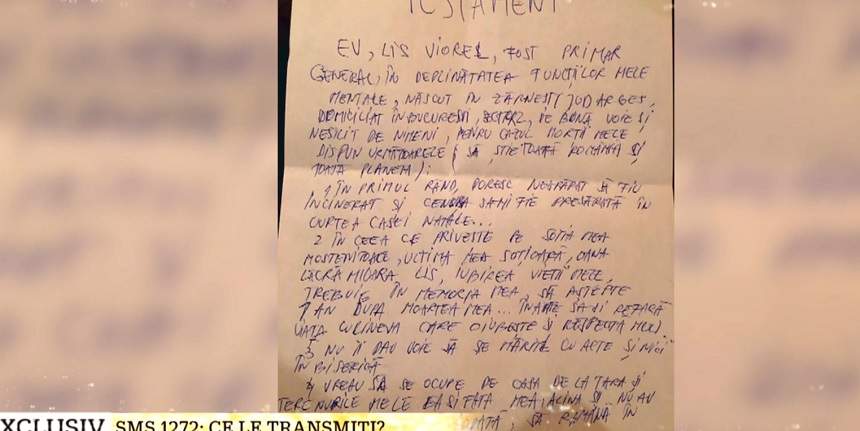 TESTAMENT
EU, LIS VIOREL, FOST PRIMAR
GENERAL, ÎN DEPLINĂTATEA FUNCȚIILOR MELE
MENTALE, NĂSCUT ÎN ZĂRNEȘTI JUD ARGEȘ,
DOMICILIAT ÎN BUCUREȘTI, DE BUNĂ VOIE ȘI
NESILIT DE NIMENI, PENTRU CAZUL MORȚII MELE
DISPUN URMĂTOARELE (SĂ ȘTIE TOATĂ ROMÂNIA ȘI
TOATĂ PLANETA):
1 ÎN PRIMUL RÂND, DORESC NEAPĂRAT SĂ FIU
INCINERAT ȘI CENUȘA SĂ-MI FIE PRESĂRATĂ ÎN
CURTEA CASEI NATALE...
2 ÎN CEEA CE PRIVEȘTE PE SOȚIA MEA
MOȘTENITOARE, ULTIMA MEA SOȚIOARĂ, OANA
LĂCRĂMIOARA LIS, IUBIREA VIEȚII MELE,
TREBUIE ÎN MEMORIA MEA, SĂ AȘTEPTE
1 AN DUPĂ MOARTEA MEA... ÎNAINTE SĂ-ȘI REFACĂ
VIAȚA CU CINEVA CARE O IUBEȘTE ȘI RESPECTĂ MULT.
3 NU ÎI DAU VOIE SĂ SE MĂRITE CU ACTE ȘI NICI
ÎN BISERICĂ
4 VREAU SĂ SE OCUPE DE CASA DE LA ȚARĂ ȘI
TERENURILE MELE EA ȘI FATA MEA, ALINA ȘI NU AU
SĂ RĂMÂNĂ ÎN
XCLUSIV SMS 1272: CE LE TRANSMIȚI?